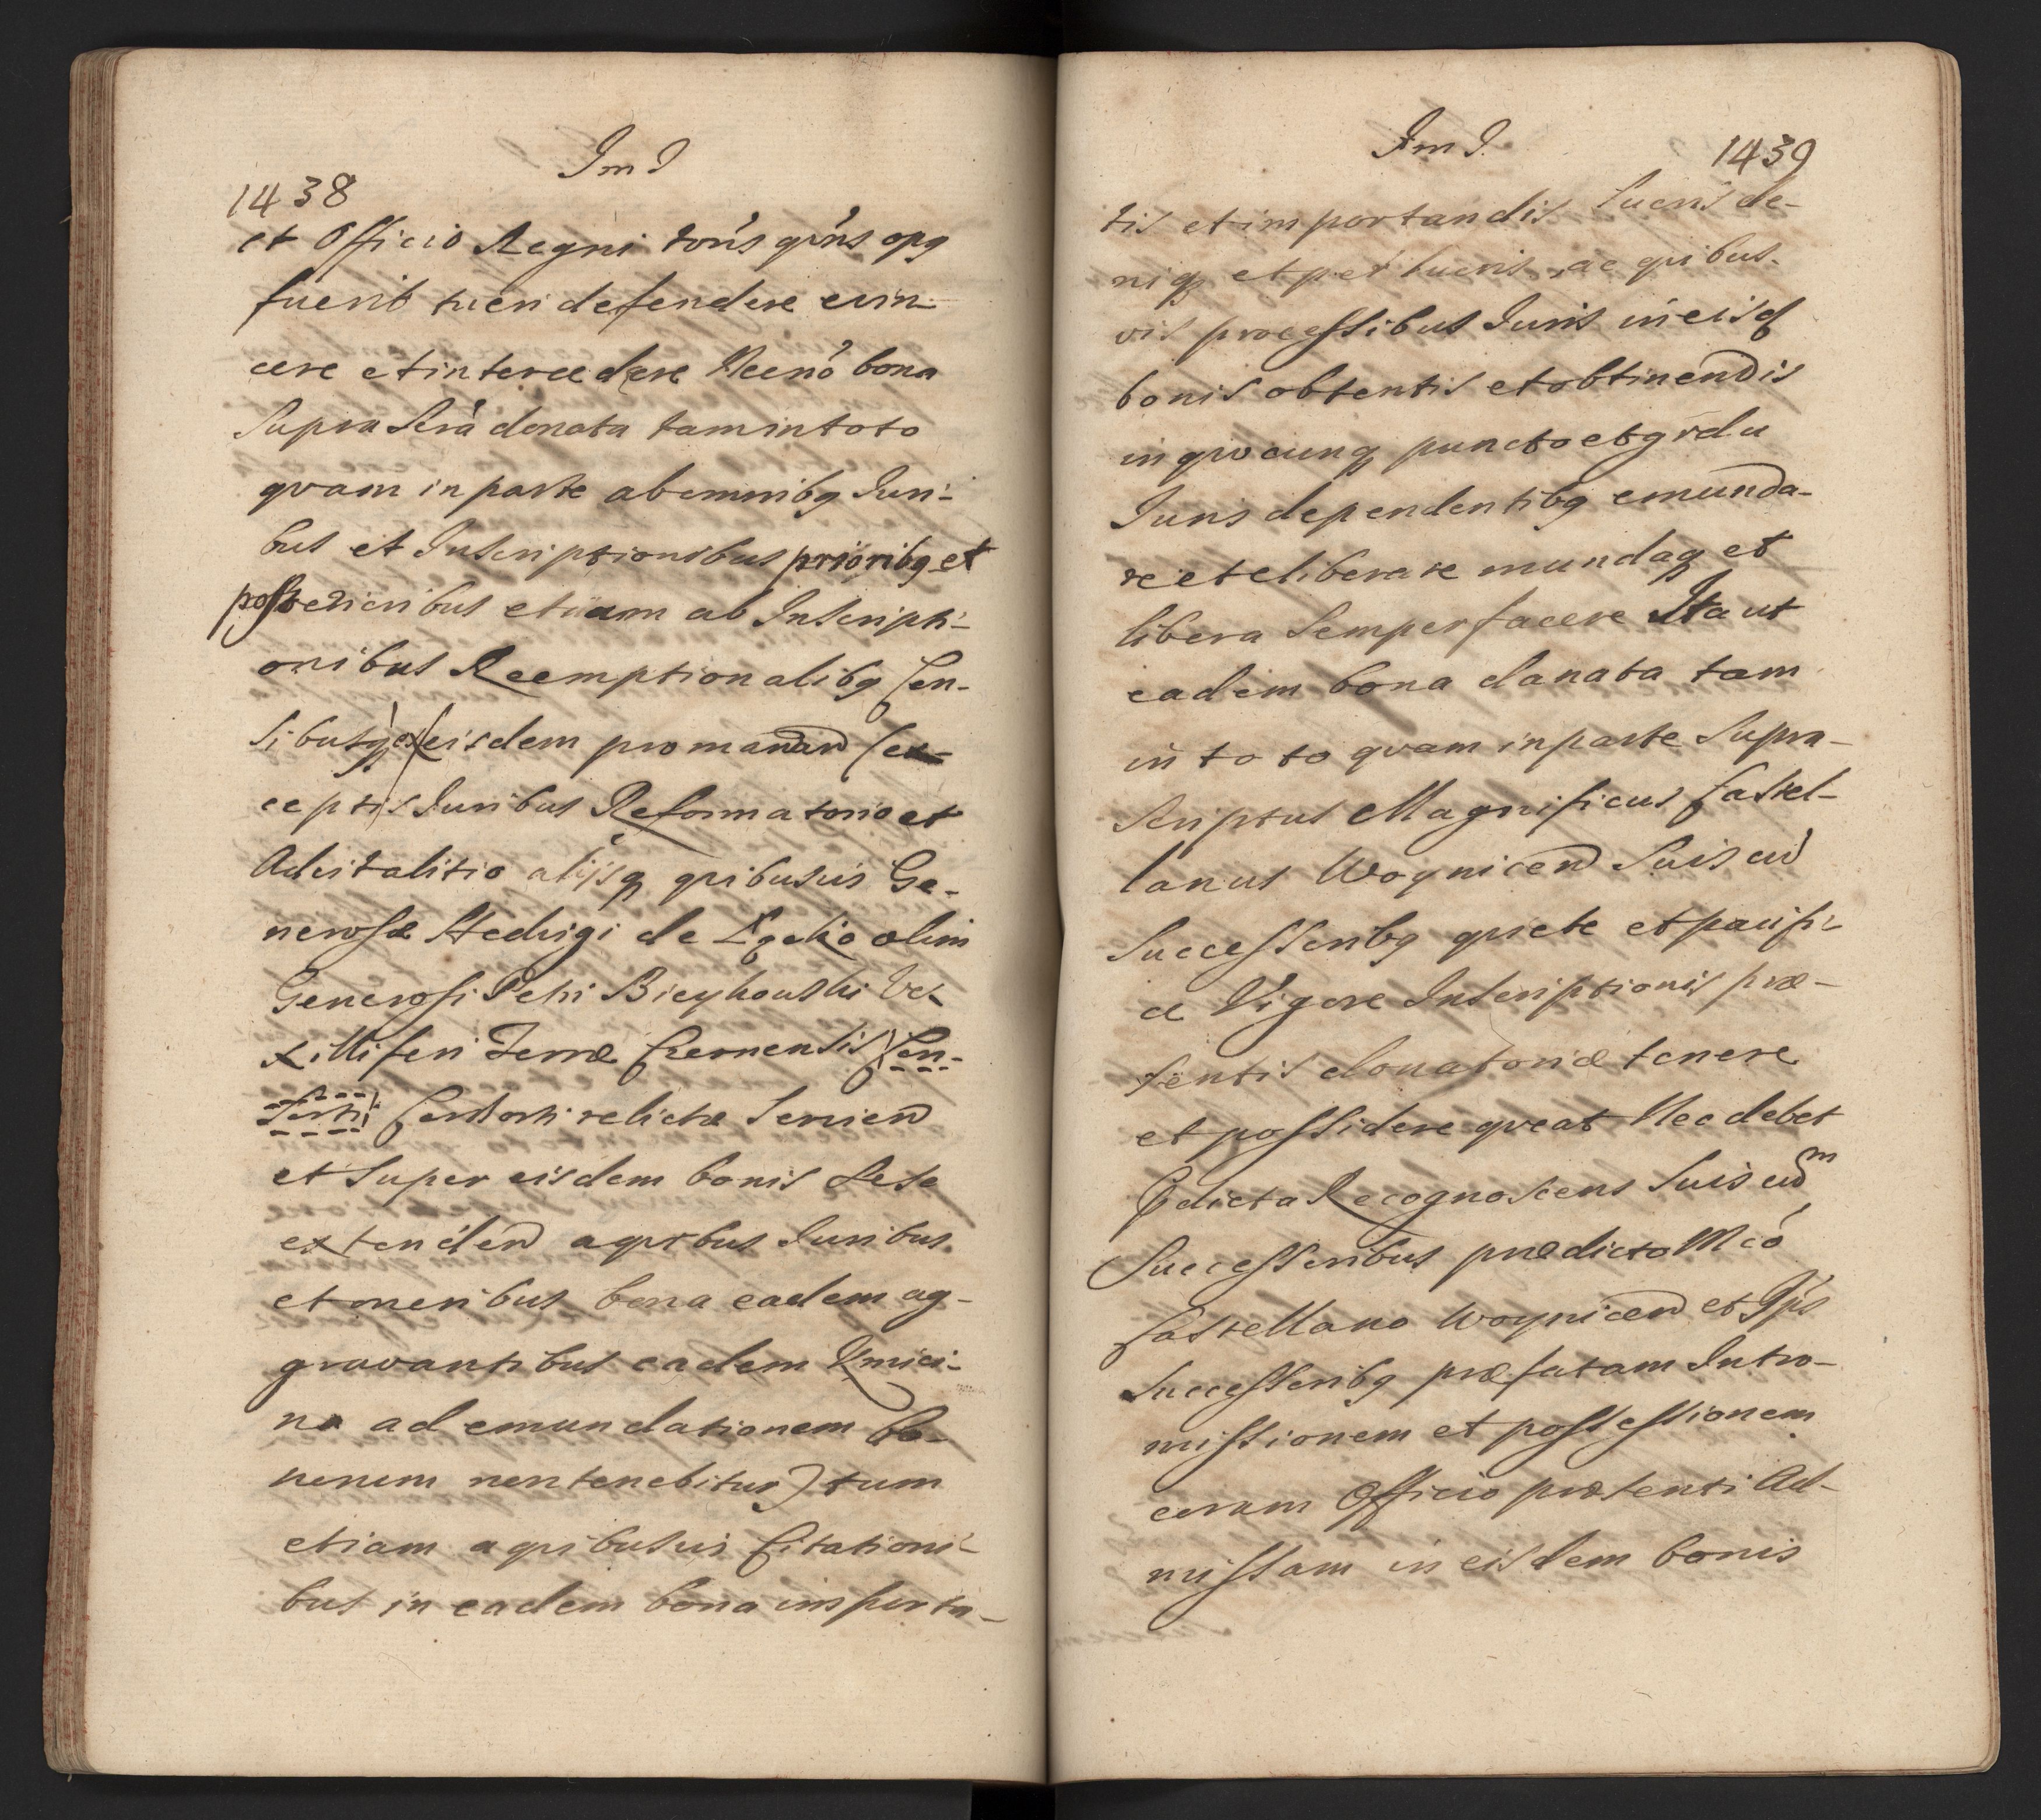 Jm J
1438
et Officio Regni toń's qvń's opq
fuerit tueri defendere evin-
cere et intercedere Necnō bona
Supra Scrã donata tam in toto
qvam in parte ab omnibq Juri-
bus et Inscriptionibus prioribq et
posterioribus etiam ab Inscripti-
onibus Reemptionalibq Cen-
sibusqꝫ ex eisdem promanan (ex-
ceptis Juribus Reformatorio et
Advitalitio alijsq qvibusvis Ge-
nerosæ Hedvigi de olim
Generosi Petri Bieykowski Ve-
xilliferi Terræ Czernensis Con-
sorti Consorti relictæ Servien
et super eisdem bonis sese
extenden a qvibus Juribus
et oneribus bona eadem ag-
gravantibus eadem Kmici-
na ad emundationem bo-
norum non tenebitur) tum
etiam a qvibusvis Citationi-
bus in eadem bona insporta-
Jm J.
1439
tis et importandis Lucris de-
niq et per lucris ac qvibus-
vis processibus Juris in eisq
bonis obtentis et obtinendis
in qvocunq puncto et grdu
Juris dependentibq emunda-
re et eliberare mundaq et
libera semper facere Ita ut
eadem bona donata tam
in toto qvam in parte Supra-
scriptus Magnificus Castel-
lanus Woynicen Suis cū
Successoribq qviete et pacifi-
ce Vigore Inscriptionis præ-
sentis donatoriæ tenere
et possidere qveat Nec debet
Edicta Recognoscens Suis cū m
Successoribus prædicto Mcó
Castellano Woynicen et Ip's
Successoribq præfatam Intro-
missionem et possessionem
coram Officio præsenti Ad-
missam in eisdem bonis